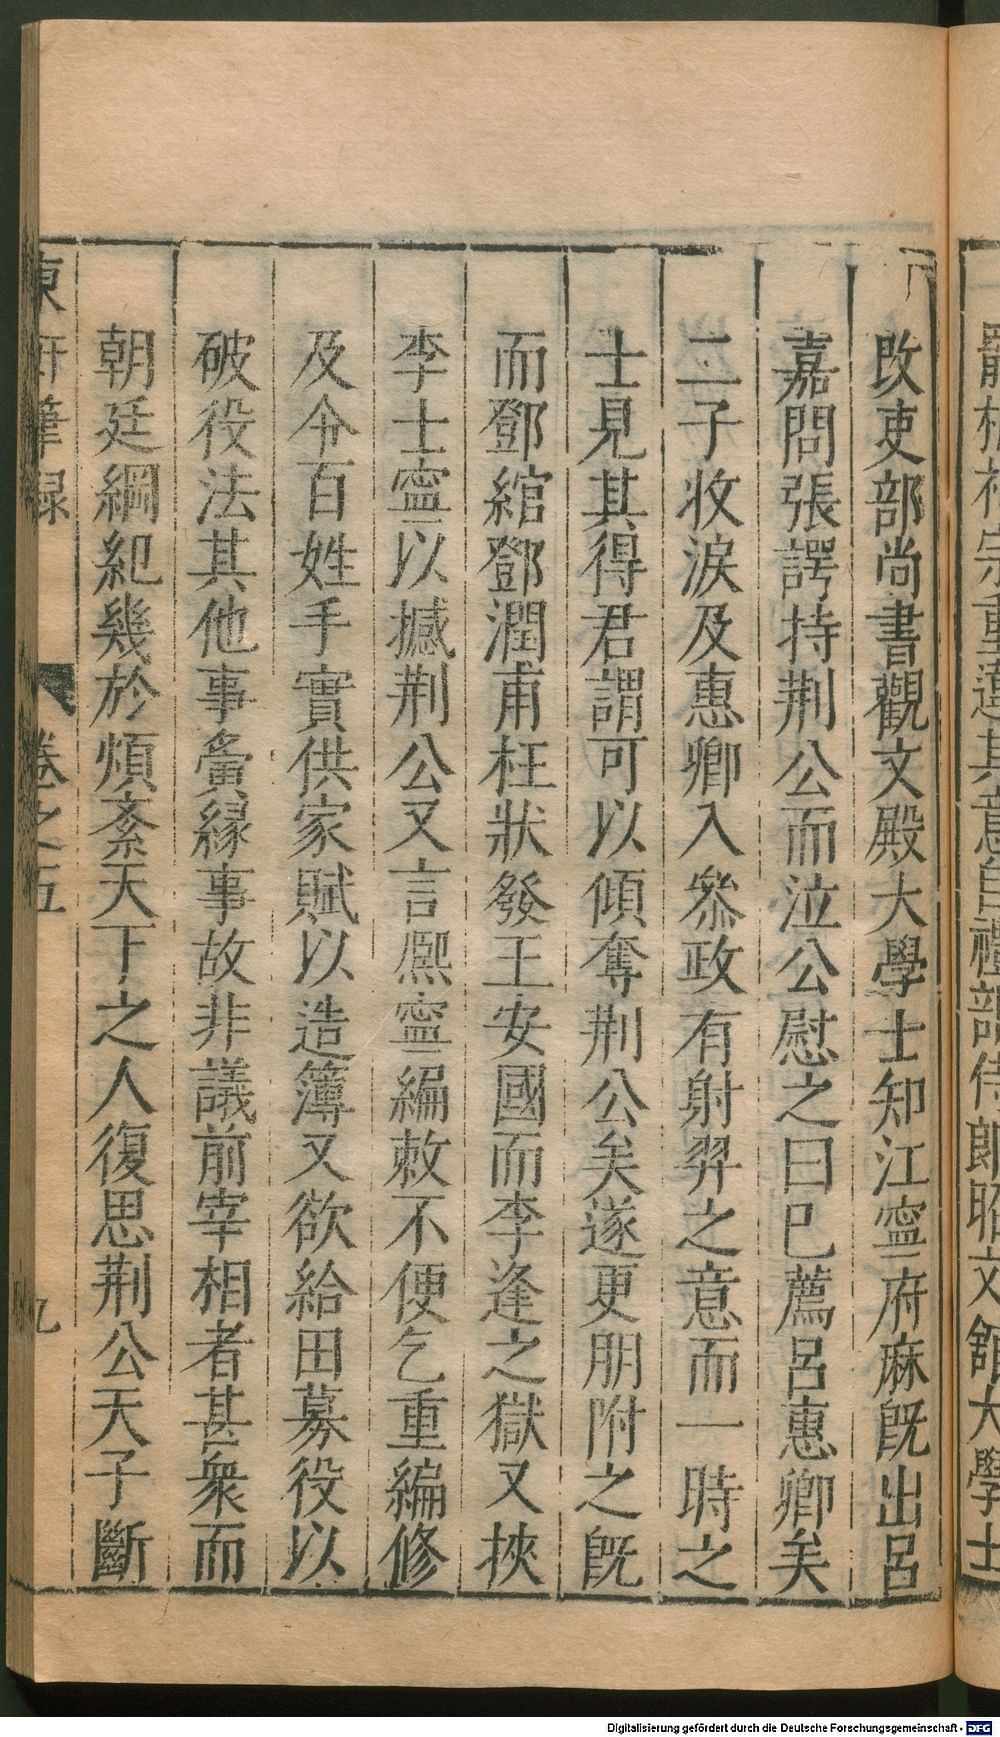 罷相神宗重違其意自禮部侍郎昭文舘大學士
改吏部尚書觀文殿大學士知江寧府麻旣出呂
嘉問張諤持荆公而泣公慰之曰巳薦呂惠卿矣
二子收淚及惠卿入叅政有射羿之意而一時之
士見其得君謂可以傾奪荆公矣遂更朋附之旣
而鄧綰鄧潤甫枉狀發王安國而李逢之獄又挾
李士寧以撼荆公又言熈寧編敕不便乞重編修
及令百姓手實供家賦以造簿又欲給田募役以
破役法其他事夤緣事故非議前宰相者甚衆而
朝廷綱紀幾於煩紊天下之人復思荆公天子斷
東軒筆録 卷之五 九
Digitalisierung gefördert durch die Deutsche Forschungsgemeinschaft - DFG